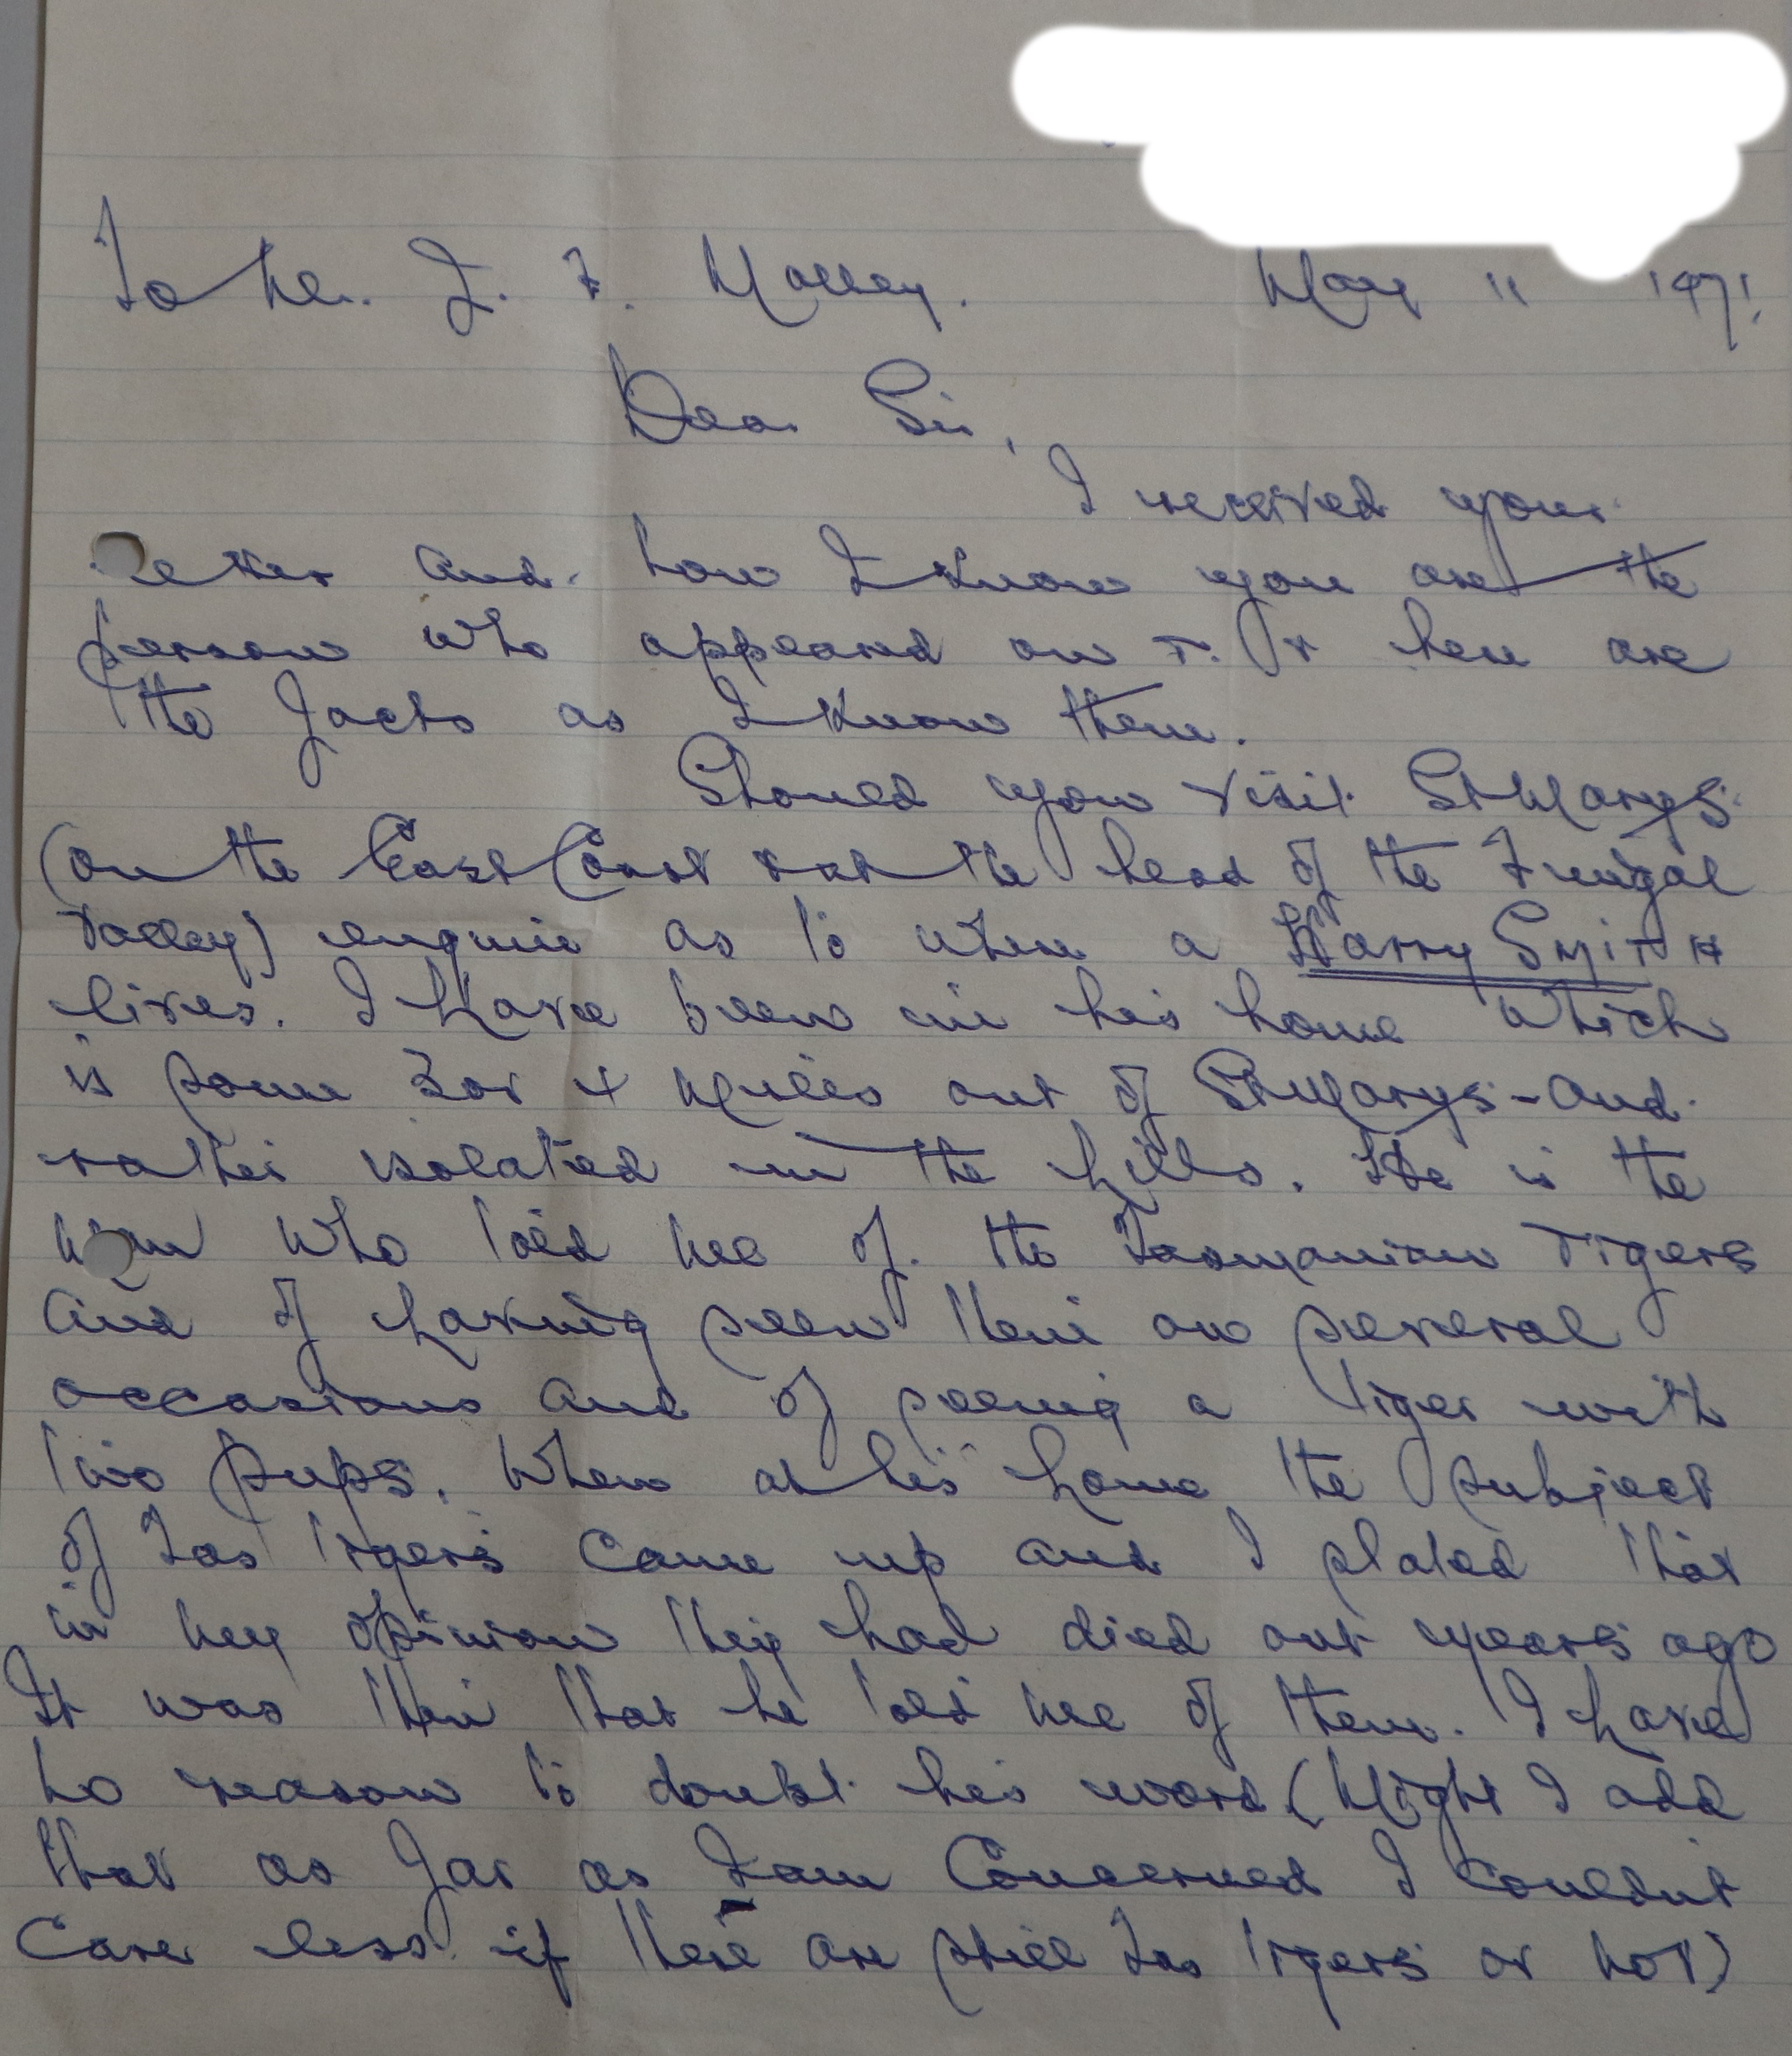 To Mr. J. F. Malley. May 11 1971
Dear Sir,
I received your
letter and now I know you are the
person who appeared on T.V here are
the facts as I know them.
Should you visit St Marys
(on the East Coast at the head of the Fingal
Valley) enquire as to where a Harry SMITH
lives. I have been in his home which
is some 3 or 4 miles out of St Marys - and
rather isolated in the hills. He is the
man who told me of the Tasmanian Tigers
and of having seen them on several
occasions and of seeing a tiger with
two pups. When at his home the subject
of Tas tigers came up and I stated that
in my opinion they had died out years ago
It was then that he told me of them. I have
no reason to doubt his word (Might I add
that as far as I am concerned I couldnt
care less if there are still Tas tigers or not)